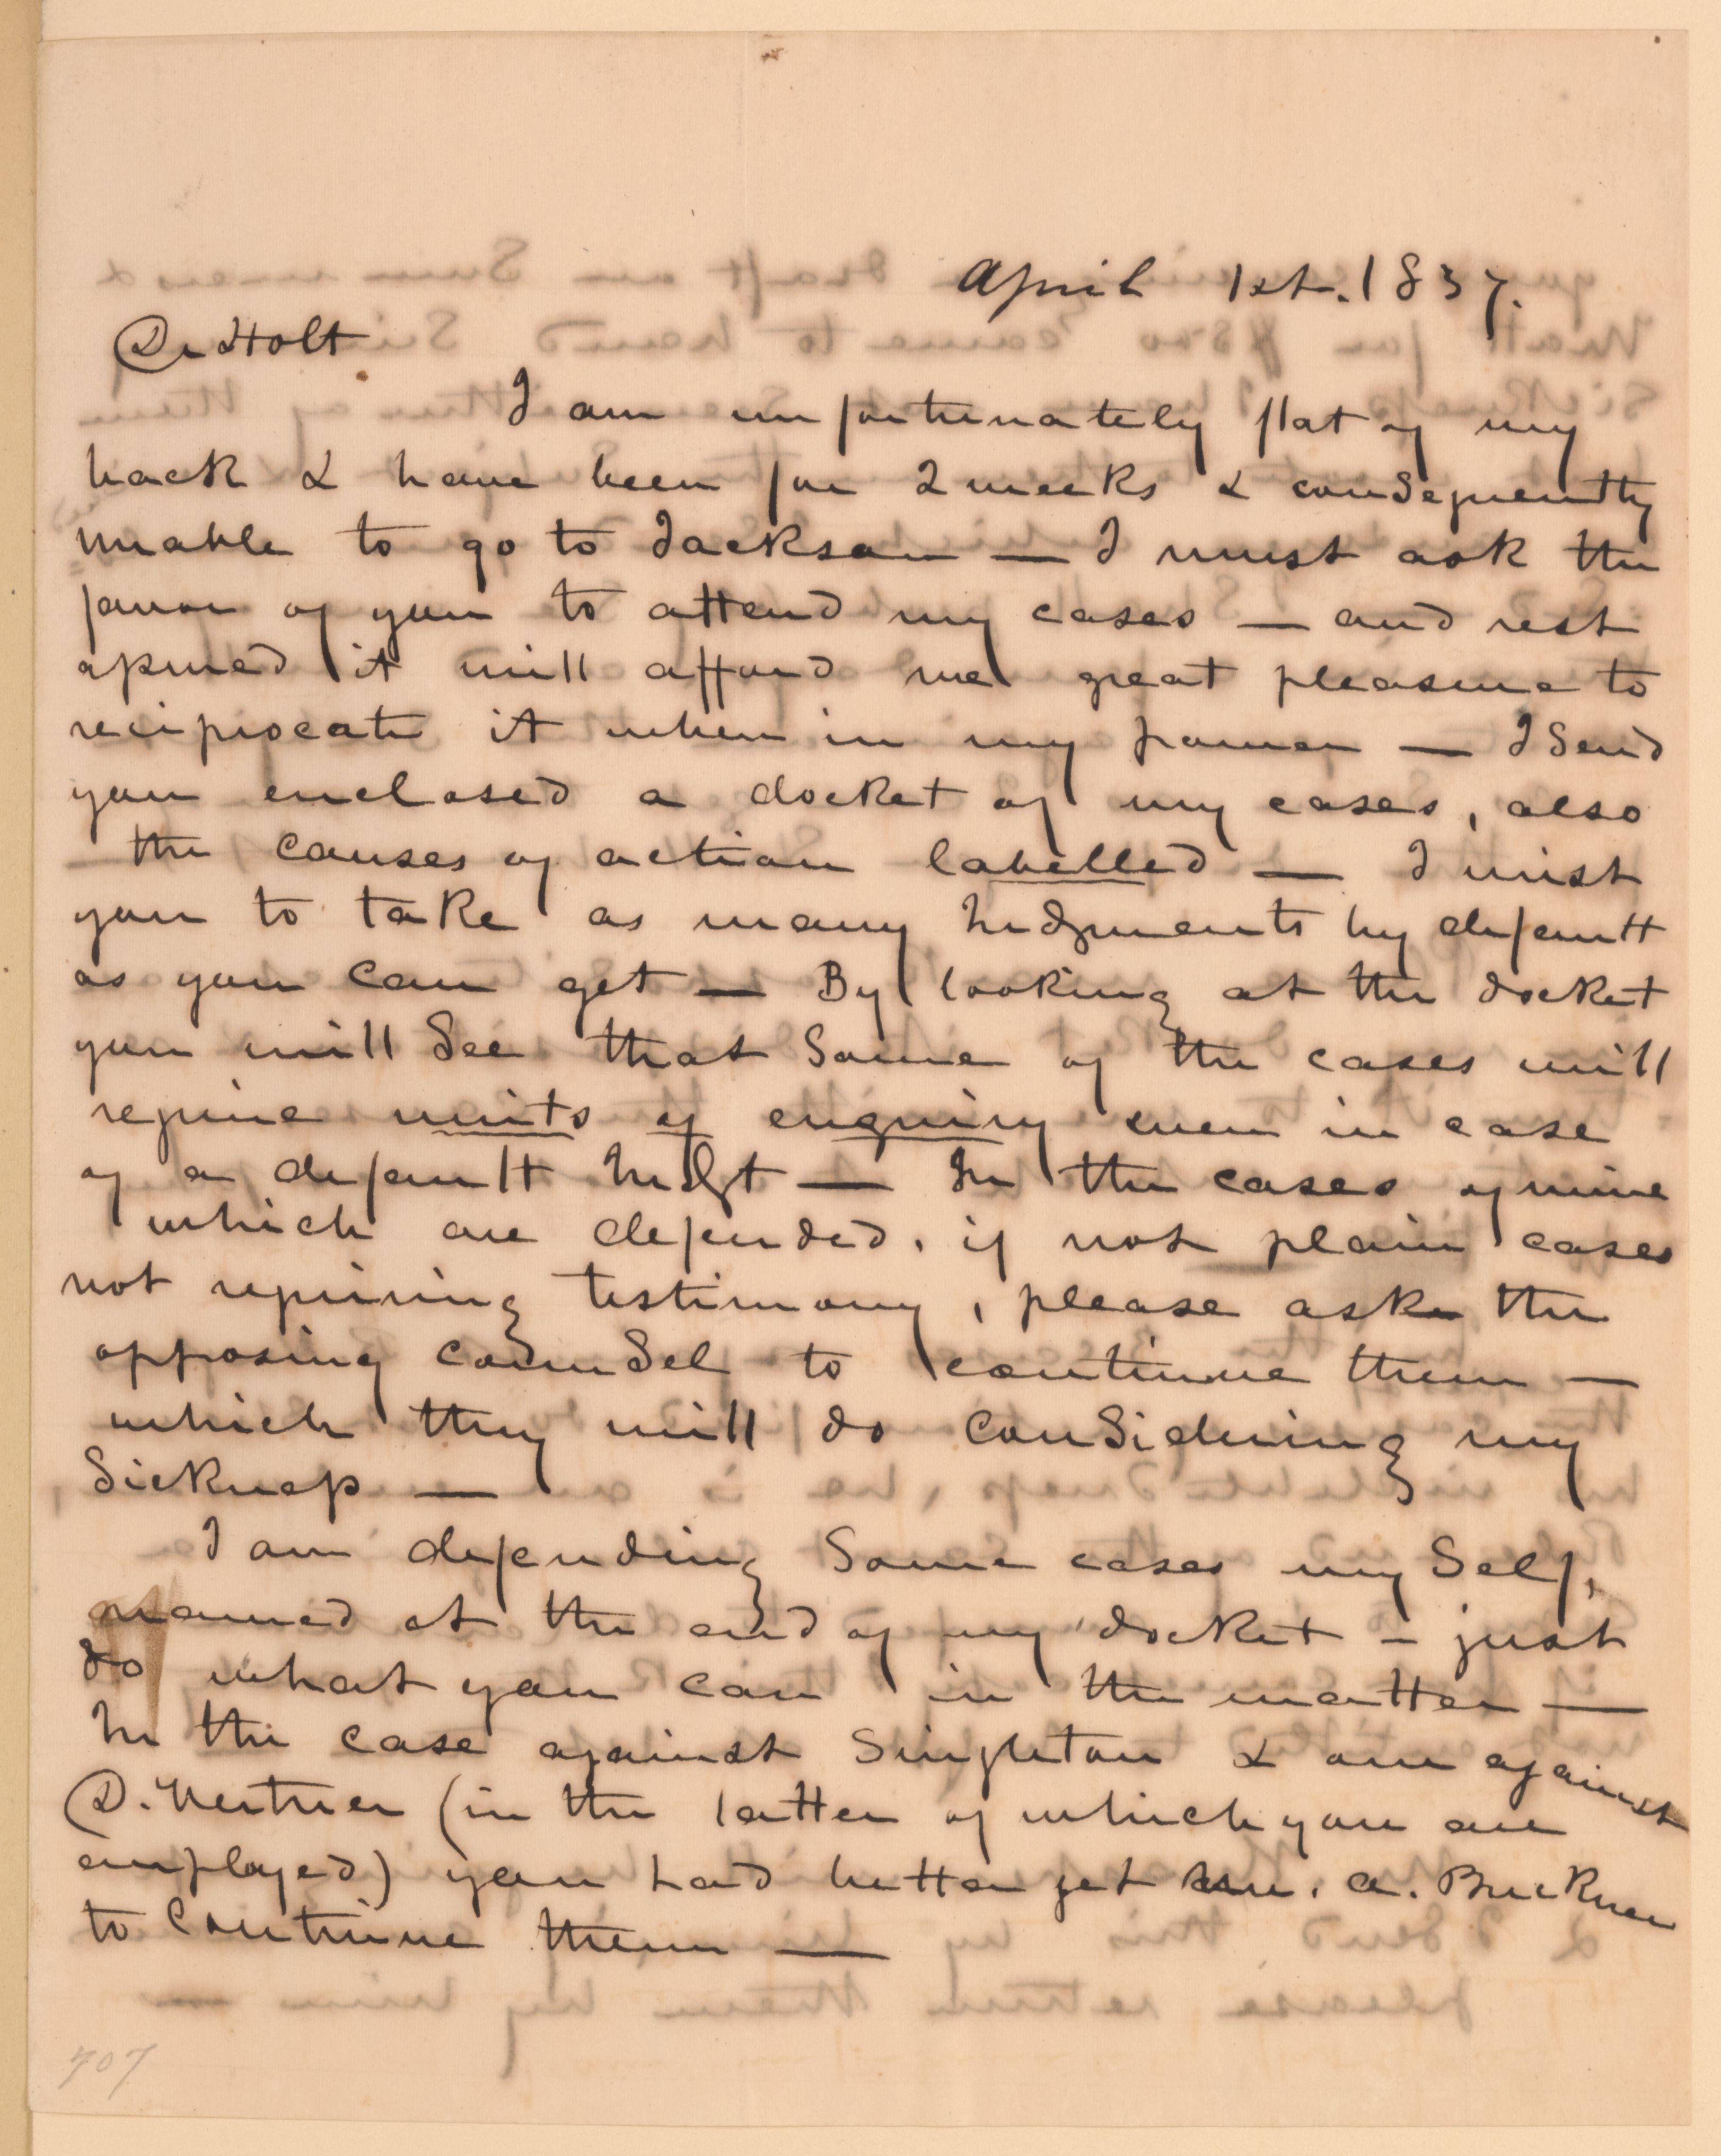 April 1st. 1837.
Dr Holt
I am unfortunately flat of my
back & have been for 2 weeks & consequently
unable to go to Jackson — I must ask the
favor of you to attend my cases — and rest
assured it will afford me great pleasure to
reciprocate it when in my power — I send
you enclosed a docket of my cases, also
the causes of action labelled — I wish
you to take as many Judgments by default
as you can get — By looking at the docket
you will see that some of the cases will
require writs of enquiry even in case
of a default Judgt — In the cases of mine
which are defended, if not plain cases
not requiring testimony, please ask the
opposing counsel to continue them —
which they will do considering my
Sickness —
I am defending some cases my self,
named at the end of my docket – just
do what you can in the matter —
In the case against Singleton & one against
D. Vertner (in the latter of which you are
employed) you had better get A. Buckner
to continue them —
707